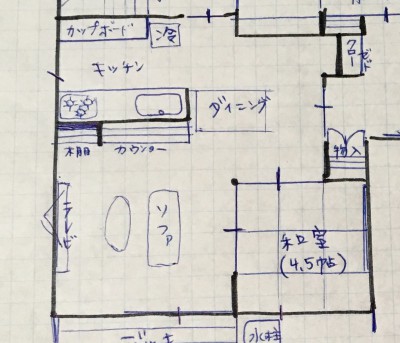 カップボード
冷
クローゼット
キッチン
ダイニング
棚
カウンター
物入
テレビ
ソファ
和室
(4.5帖)
デッキ
水栓